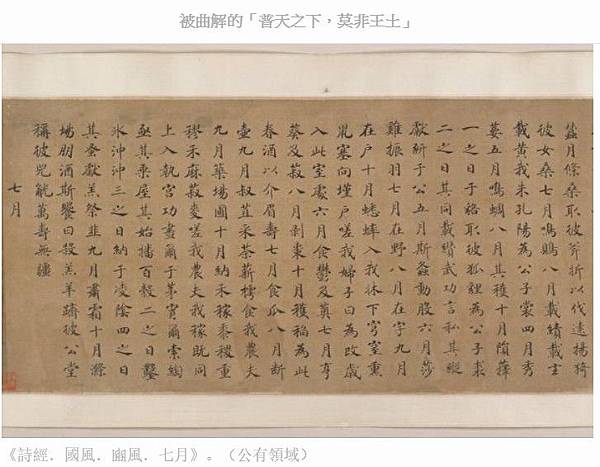 被曲解的「普天之下,莫非王土」
蠶月條桑取彼斧斨以伐遠揚猗
彼女桑七月鳴鵙八月載績載玄
載黃我朱孔陽為公子裳四月秀
葽五月鳴蜩八月其穫十月隕蘀
一之日于貉取彼狐貍為公子裘
二之日其同載纘武功言私其豵
獻豜于公五月斯螽動股六月莎
雞振羽七月在野八月在宇九月
在戶十月蟋蟀入我牀下穹窒熏
鼠塞向墐戶嗟我婦子曰為改歲
入此室處六月食鬱及薁七月亨
葵及菽八月剝棗十月穫稻為此
春酒以介眉壽七月食瓜八月斷
壺九月叔苴采荼薪樗食我農夫
九月築場圃十月納禾稼黍稷重
穋禾麻菽麥嗟我農夫我稼既同
上入執宮功晝爾于茅宵爾索綯
亟其乘屋其始播百穀二之日鑿
冰沖沖三之日納于凌陰四之日
其蚤獻羔祭韭九月肅霜十月滌
場朋酒斯饗曰殺羔羊躋彼公堂
稱彼兕觥萬壽無疆
七月
《詩經．國風．豳風．七月》。(公有領域)